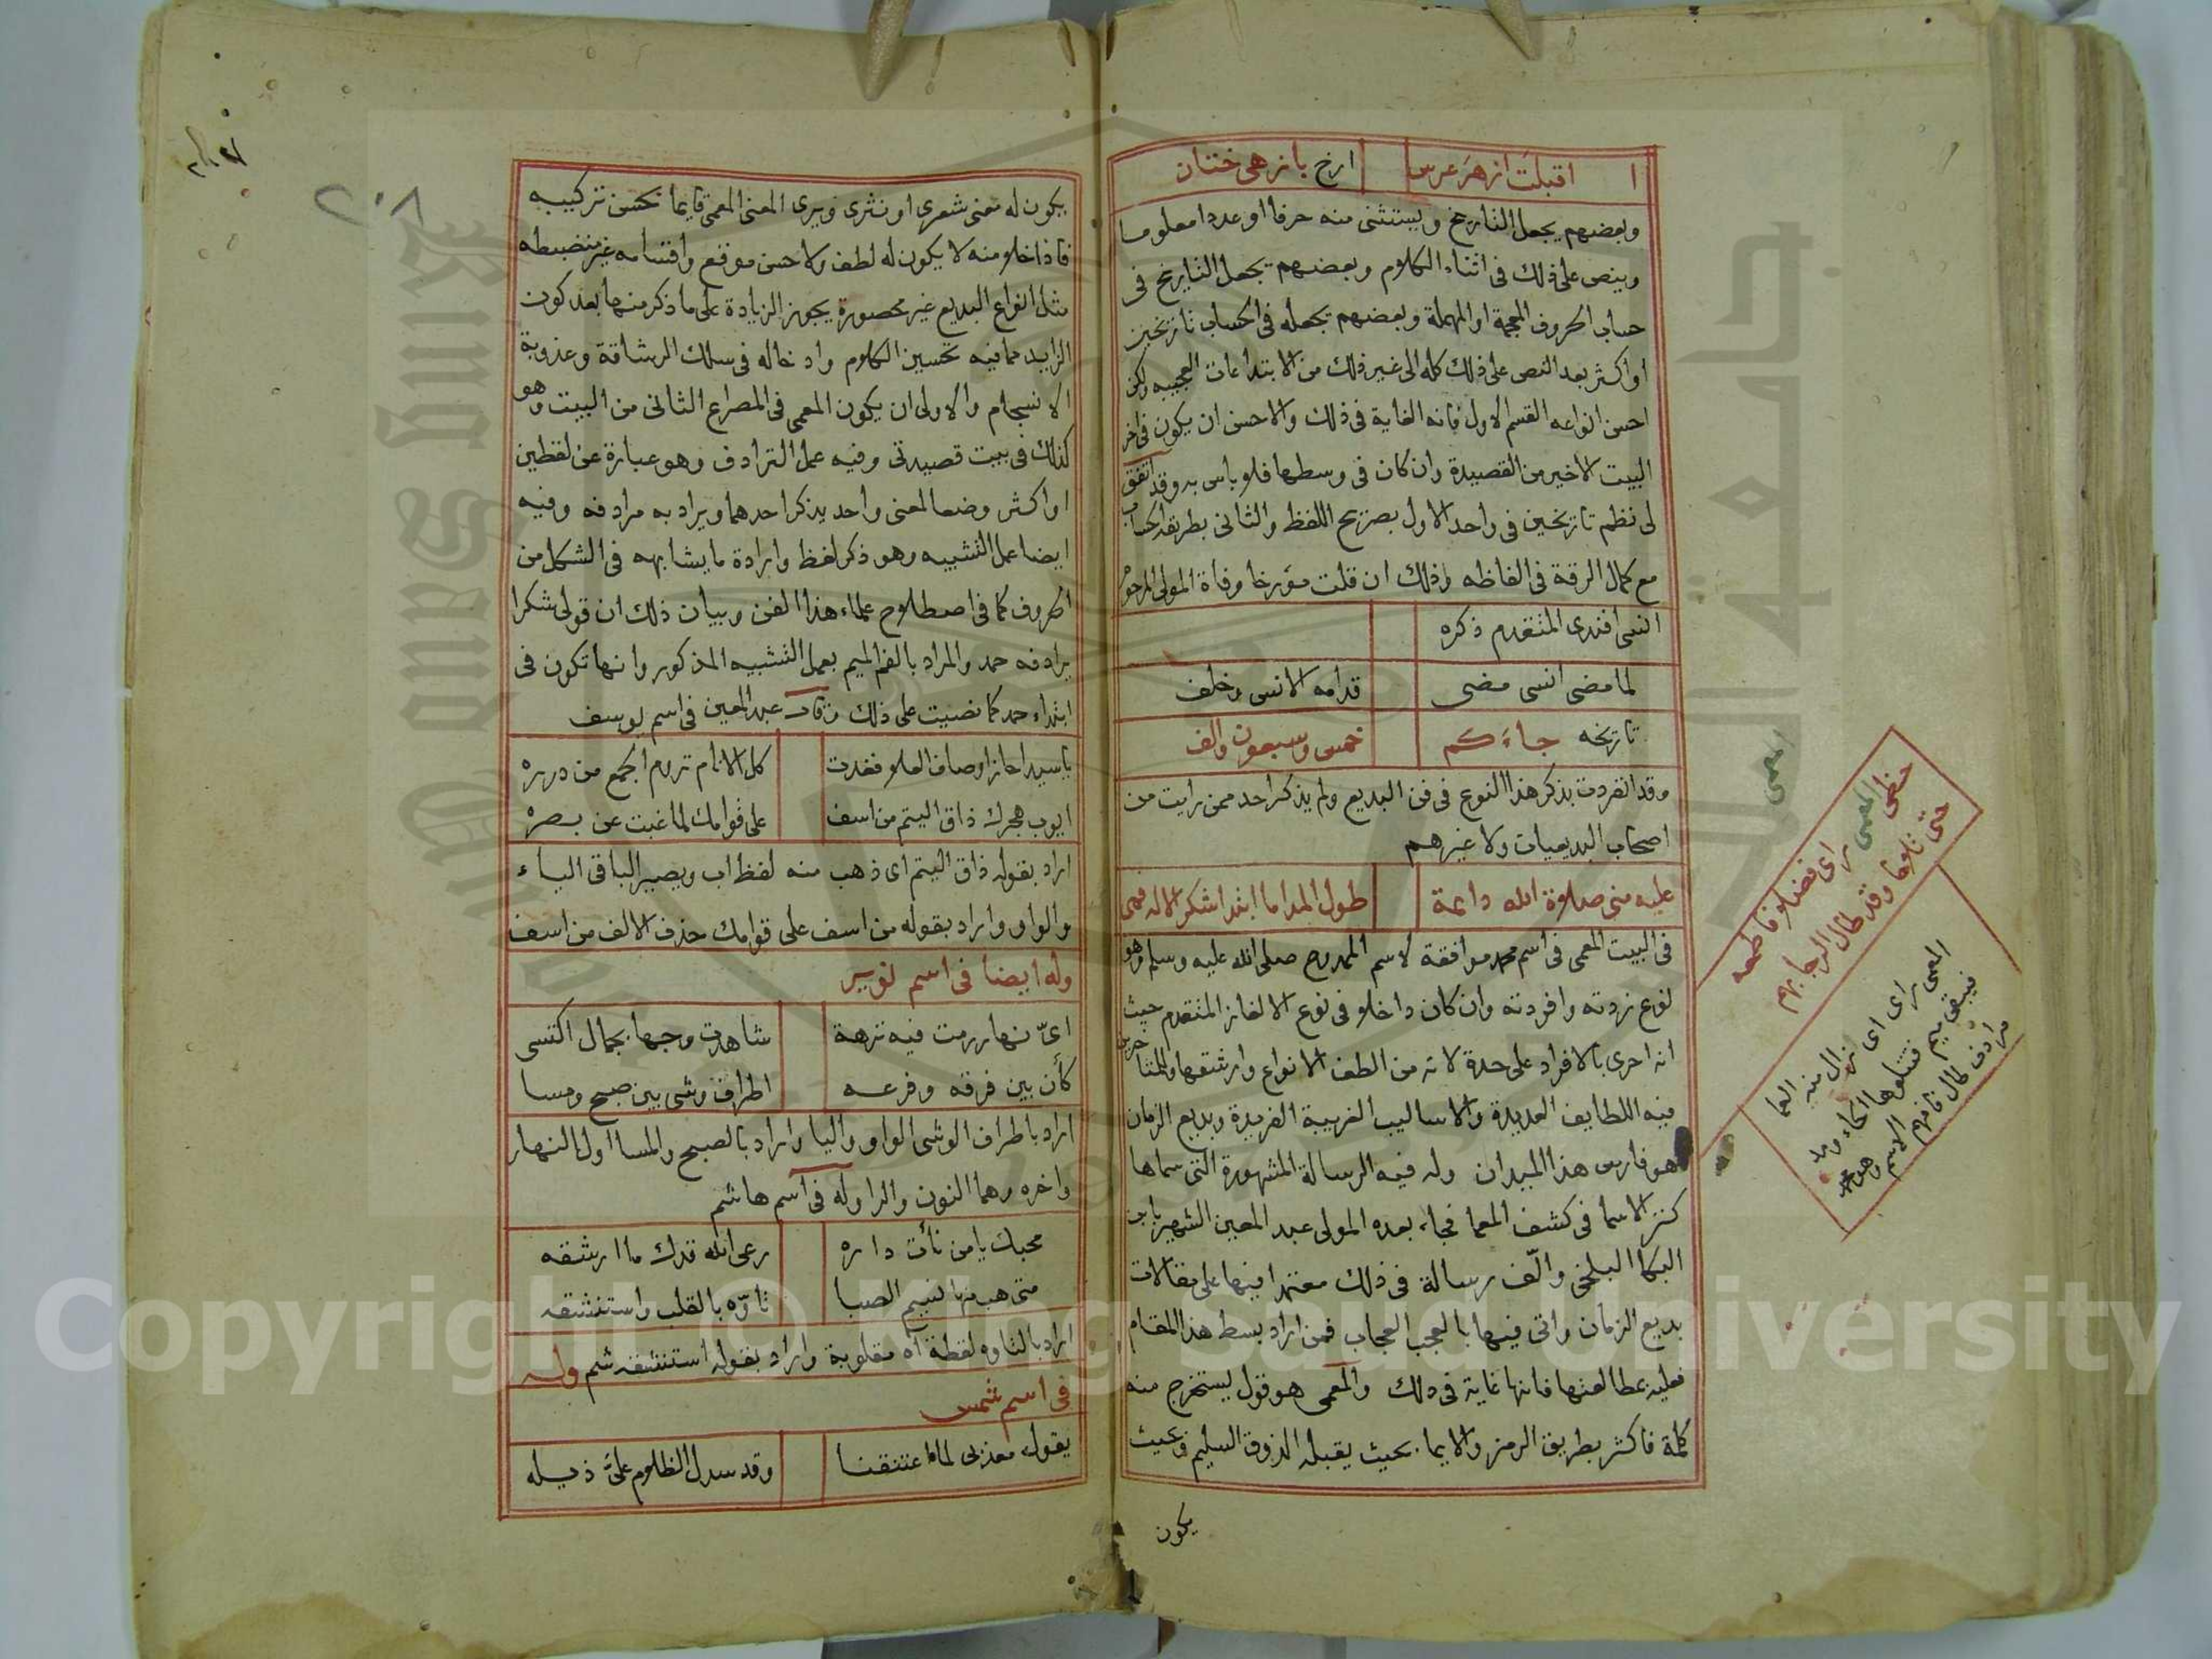 اقبلت ازهر عرس ارخ بازهى ختان
وبعضهم يجعل التاريخ ويستثنى منه حرفا او عددا معلوما
وينص على ذلك فى اثناء الكلام وبعضهم يجعل التاريخ فى
حساب الحروف المعجمة او المهملة وبعضهم يجعله فى الحساب تاريخين
او اكثر بعد النص على ذلك كله الى غير ذلك من الابتداعات العجيبه ولكن
احسن انواعه القسم الاول فانه الغاية فى ذلك والاحسن ان يكون فى اخر
البيت الاخير من القصيدة وان كان فى وسطها فلا باس به وقد اتفق
لى نظم تاريخين فى واحد الاول بصريح اللفظ والثانى بطريقة الحساب
مع كمال الرقة فى الفاظه وذلك ان قلت مؤرخا وفاة المولى المرحوم
انسى افندى المتقدم ذكره
لما مضى انسى مضى قدامه الانسى وخلف
تاريخه جاءكم خمس وسبعون والف
وقد انفردت بذكر هذا النوع فى فن البديع ولم يذكر احد ممن رايت من
اصحاب البديعيات ولا غيرهم
عليه منى صلاة الله دائمة طول المدا ما ابتدا شكر الاله فمى
فى البيت المعمى فى اسم محمد موافقة لاسم الممدوح صلى الله عليه وسلم وهو
نوع زدته وافردته وان كان داخلا فى نوع الالغاز المتقدم حيث
انه احرى بالافراد على حدة لانه من الطف الانواع وارشقها وللمتاخرين
فيه اللطايف العديدة والاساليب الغريبة الفريدة وبديع الزمان
هو فارس هذا الميدان وله فيه الرسالة المشهورة التى سماها
كنز الاسما فى كشف المعما فجاء بعده المولى عبد المعين الشهير بابن
البكا البلخى والّف رسالة فى ذلك معتمدا فيها على مقالات
بديع الزمان واتى فيها بالعجب العجاب فمن اراد بسط هذا المقام
فعليه بمطالعتها فانها غاية فى ذلك والمعمى هو قول يستخرج منه
كلمة فاكثر بطريق الرمز والايما بحيث يقبله الذوق السليم وبحيث
يكون
حظى المعمى راى فضلا فاطمعه
حتى تلاها وقد طال الرجا بهم
المعمى راى اى زال منه العما
فيبقى ميم فتتلوها الحاء ومد
مرادف طال فافهم الاسم وهو محمد
معمى
٢٠٨
يكون له معنى شعرى او نثرى ويرى المعنى المعمى قايما بحسن تركيبه
فاذا خلا منه لا يكون له لطف ولا حسن موقع واقسامه غير منضبطه
مثل انواع البديع غير محصورة يجوز الزيادة على ما ذكر منها بعد كون
الزايد مما فيه تحسين الكلام وادخاله فى سلك الرشاقة وعذوبة
الانسجام والاولى ان يكون المعمى فى المصراع الثانى من البيت وهو
كذلك فى بيت قصيدتى وفيه عمل الترادف وهو عبارة عن لفظين
او اكثر وضعا لمعنى واحد يذكر احدهما ويراد به مرادفه وفيه
ايضا عمل التشبيه وهو ذكر لفظ وارادة ما يشابهه فى الشكل من
الحروف كما فى اصطلاح علماء هذا الفن وبيان ذلك ان قولى شكرا
يرادفه حمد والمراد بالفم الميم بعمل التشبيه المذكور وانها تكون فى
ابتداء حمد كما نصيت على ذلك وقال عبد المعين فى اسم يوسف
يا سيدا حاز اوصاف العلا فغدت كل الانام تروم الجمع من درره
ايوب هجرك ذاق اليتم من اسف على قوامك لما غبت عن بصره
اراد بقوله ذاق اليتم اى ذهب منه لفظ اب ويصير الباقى الياء
والواو واراد بقوله من اسف على قوامك حذف الالف من اسف
وله ايضا فى اسم
اىّ نهار رمت فيه نزهة شاهدت وجها بجمال اكتسى
كأن بين فرقه وفرعه اطراف وشى بين صبح ومسا
اراد باطراف الوشى الواو واليا واراد بالصبح والمسا اول النهار
واخره وهما النون والرا وله فى اسم هاشم
محبك يا من نأت داره رعى الله قدك ما ارشقه
متى هب منها نسيم الصبا تاوّه بالقلب واستنشقه
اراد بالتاوه لفظة آه مقلوبة واراد بقوله استنشقه شم وله
فى اسم شمس
يقول معذبى لما اعتنقنا وقد سدل الظلام علىّ ذيله
Copyright © King Saud University
King Saud University
جامعة الملك سعود